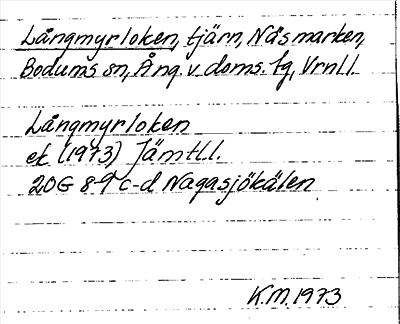 Långmyrloken, tjärn, Näsmarken,
Bodums sn, Ång. v. doms. tg, Vrnl l.
Långmyrloken
ek (1973) Jämtl.l.
20G 8-9 c-d Nagasjökälen
K.M. 1973